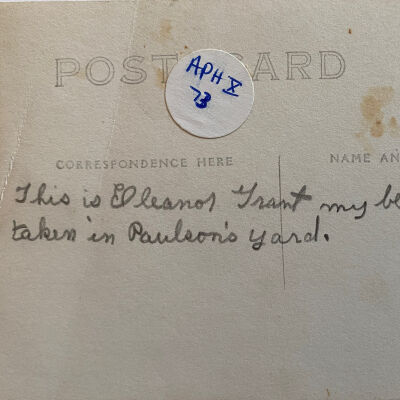 POST CARD
APH X
73
CORRESPONDENCE HERE
NAME AN
This is Eleanor Grant my be
taken in Paulson's yard.